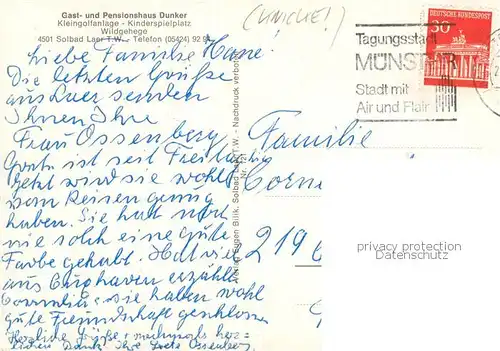 Gast- und Pensionshaus Dunker
Kleingolfanlage - Kinderspielplatz
Wildgehege
4501 Solbad Laer T.W. - Telefon (05424) 92 94
Liebe Familie
Die letzten Grüße
aus Laer senden
Ihnen Ihre
Frau Ossenberg
ist seit Freitag
jetzt wird sie wohl
vom Reisen genug
haben. Sie hat noch
nie solch eine gute
Farbe gehabt. Hat viel
aus Cuxhaven erzählt
Cornelia + sie haben wohl
gute Freundschaft geschlossen
Herzliche Grüße + nachmals herz-
lichen Dank Ihre Grete Ossenberg
Solbad Laer T.W. - Nachdruck verboten
DEUTSCHE BUNDESPOST
30
Tagungsstadt
MÜNSTER
Stadt mit
Air und Flair
Familie
Corne
219
privacy protection
Datenschutz